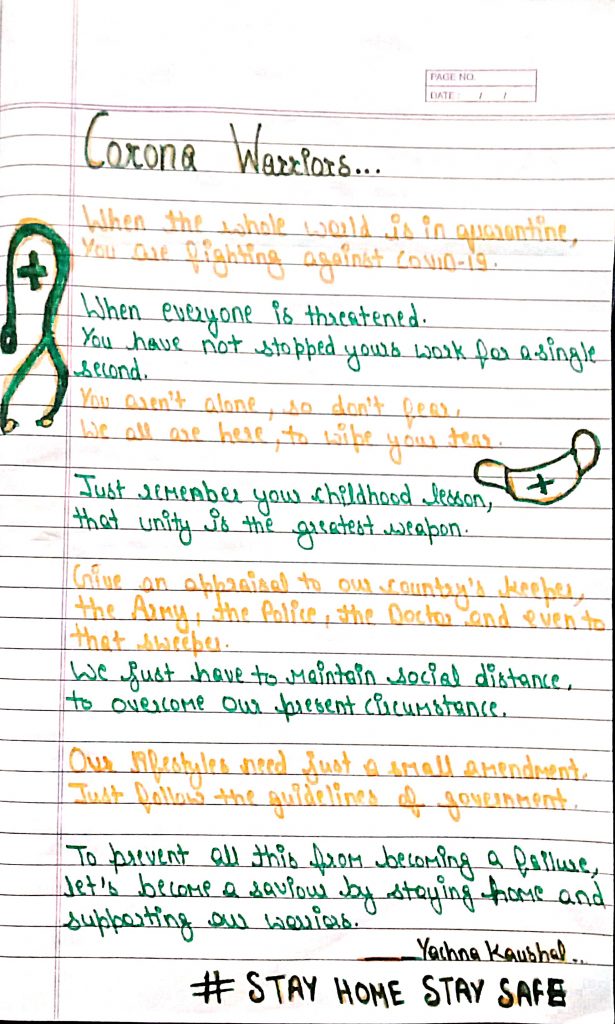 PAGE NO.
DATE: / /
Corona Warriors...
When the whole world is in quarantine,
You are fighting against COVID-19.
When everyone is threatened.
You have not stopped yours work for a single
second.
You aren't alone, so don't fear,
We all are here, to wipe your tear.
Just remember your childhood lesson,
that unity is the greatest weapon.
Give an appraisal to our country's keeper,
the Army, the Police, the Doctor and even to
that sweeper.
We just have to maintain social distance,
to overcome our present circumstance.
Our lifestyles need just a small amendment.
Just follow the guidelines of government.
To prevent all this from becoming a failure,
let's become a saviour by staying home and
supporting our warriors.
Yachna Kaushal..
# STAY HOME STAY SAFE